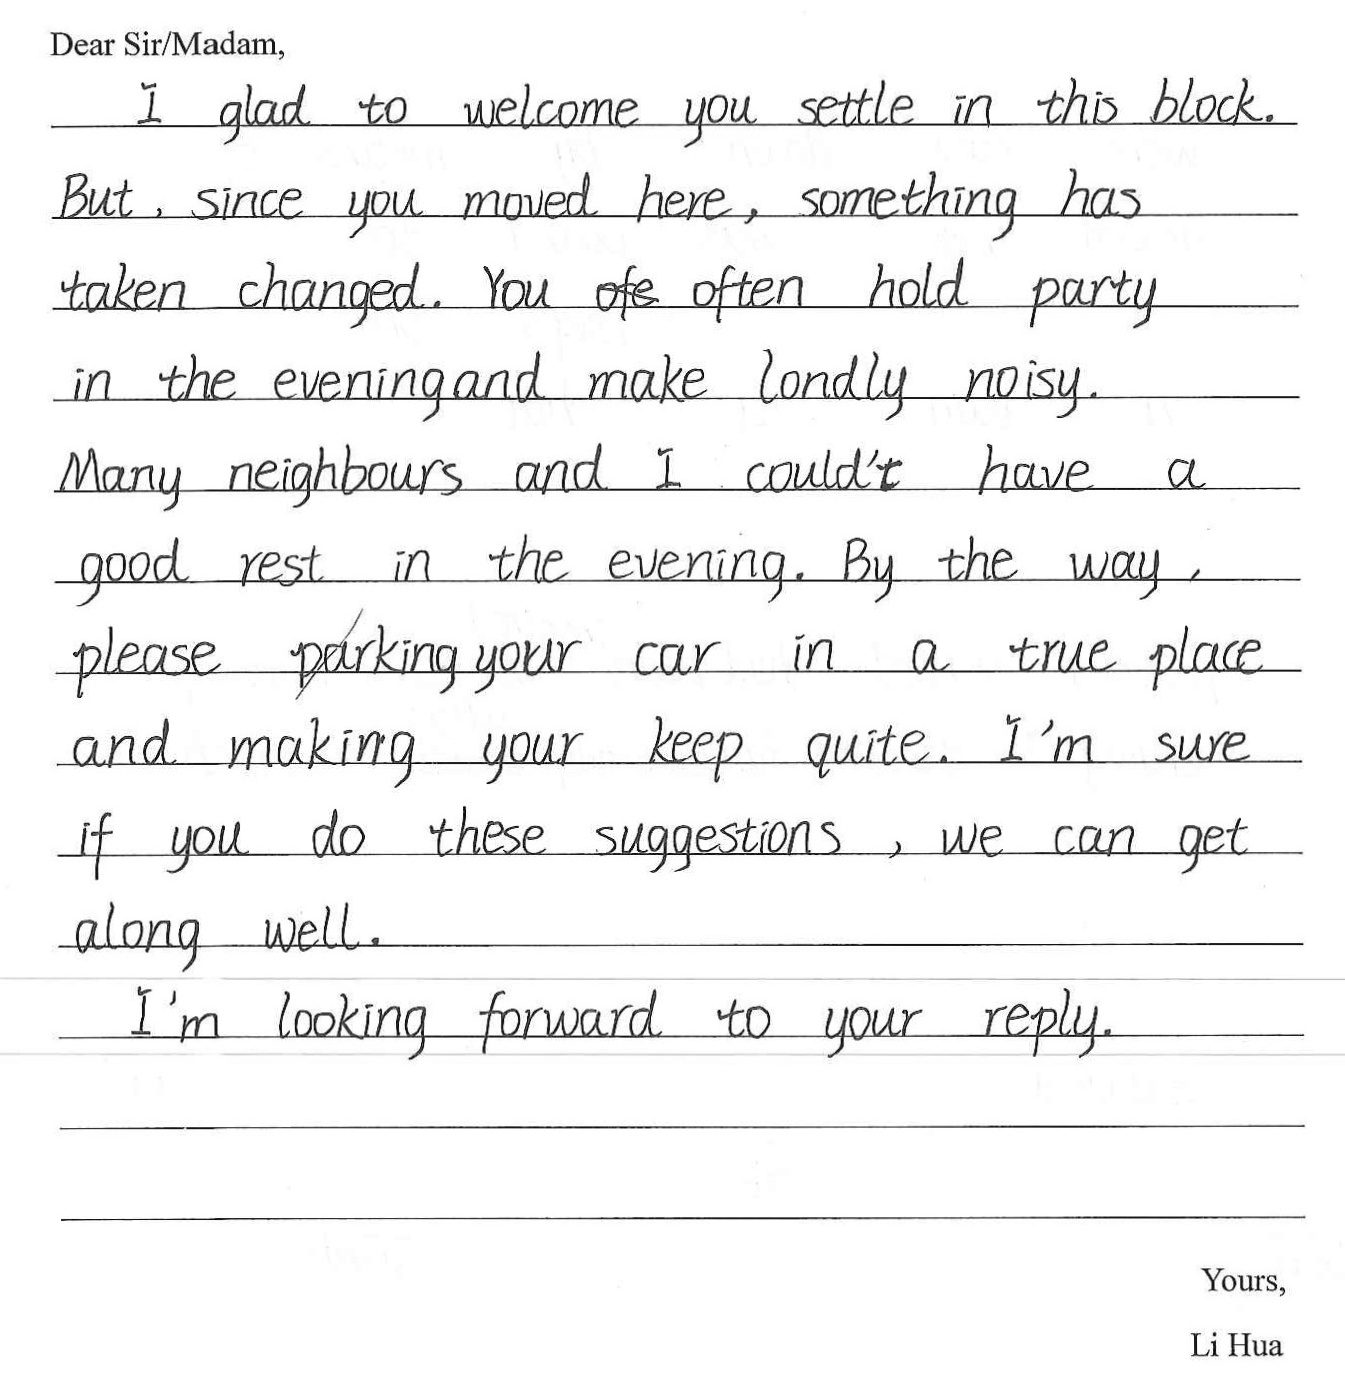 Dear Sir/Madam,
I glad to welcome you settle in this block.
But, since you moved here, something has
taken changed. You ofe often hold party
in the evening and make londly noisy.
Many neighbours and I could't have a
good rest in the evening. By the way,
please parking your car in a true place
and making your keep quite. I'm sure
if you do these suggestions, we can get
along well.
I'm looking forward to your reply.
Yours,
Li Hua